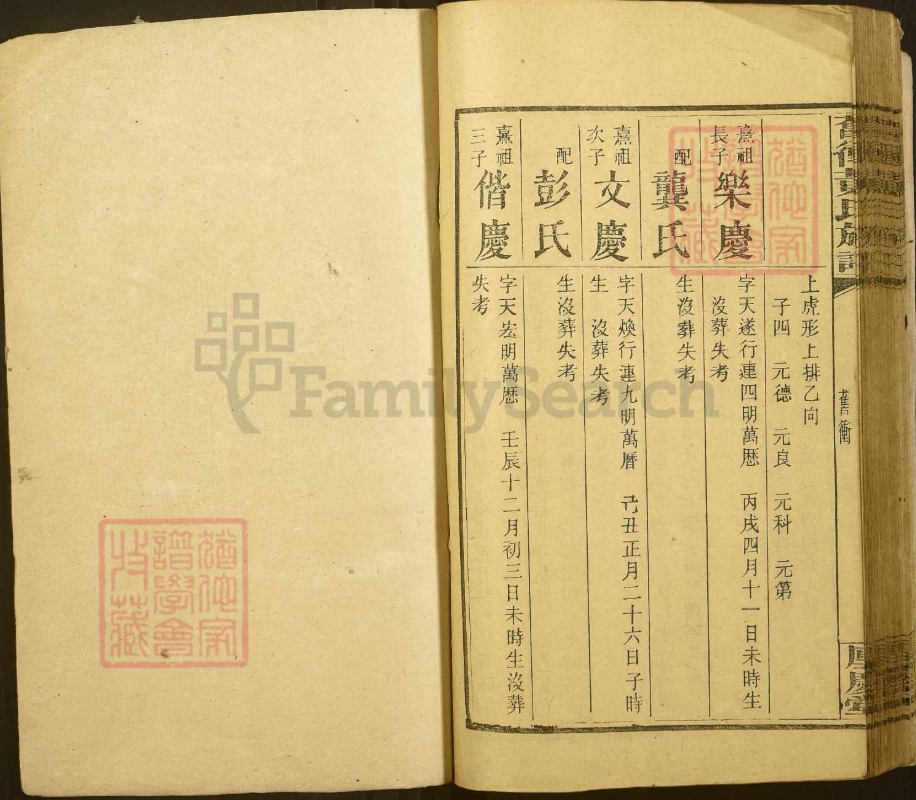 上虎形上排乙向
子四　元德　元良　元科　元第
熹祖長子樂慶
字天遂行連四明萬厯　丙戌四月十一日未時生
沒葬失考
配龔氏
生沒葬失考
熹祖次子文慶
字天煥行連九明萬曆　丑正月二十六日子時
生　沒葬失考
配彭氏
生沒葬失考
熹祖三子偕慶
字天宏明萬厯　壬辰十二月初三日未時生沒葬
失考
舊衝
氏族譜
慶堂
FamilySearch
譜學會
收藏